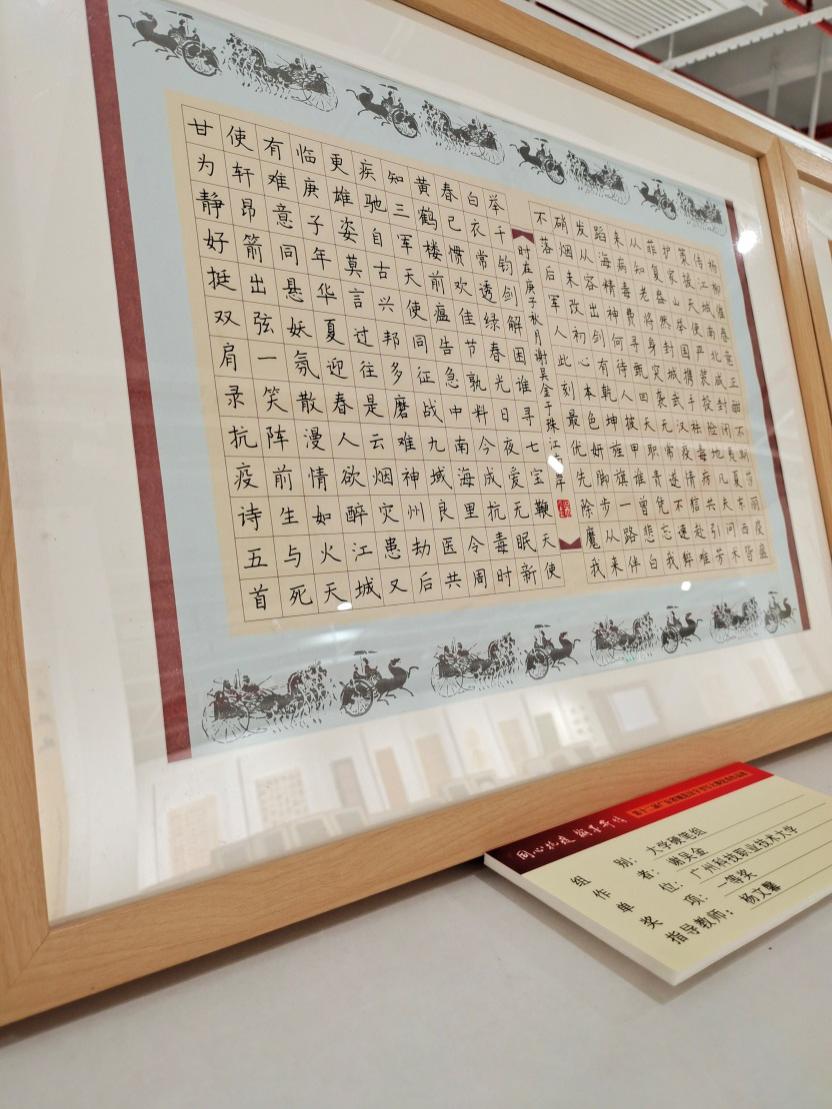 杨柳催春意正酣不期莎丽疫盛
传江城南北咸封闭夷夏东西皆
策援天使严装险地几夫问术
护家山举国携手祛毒病共引芳
菲复盘然封城武汉疫情信赴唯
从知老将身突袭无常遂不速
来病毒费寻甄回天职责凭忘我
蹈海精神何待人披甲谁曾悲白
发从容出剑有乾坤旌旗一路伴
硝烟未改初心本色妍脚步从来
不落后军人此刻最优先除魔我
时在庚子秋月谢吴金于珠江南岸
举千钧剑解困谁寻七宝鞭天使
白衣常透绿春光日夜爱无眠新
春已惯欢佳节孰料今成抗毒时
黄鹤楼前瘟告急中南海里令周
知三军天使同征战九城良医共
疾驰自古兴邦多磨难神州劫后
更雄姿莫言过往是云烟灾患又
临庚子年华夏迎春人欲醉江城
有难意同悬妖氛散漫情如火天
使轩昂箭出弦一笑阵前生与死
甘为静好挺双肩录抗疫诗五首
同心抗疫 翰墨寄情
组 别：大学硬笔组
作 者：谢吴金
单 位：广州科技职业技术大学
奖 项：一等奖
指导教师：杨文馨